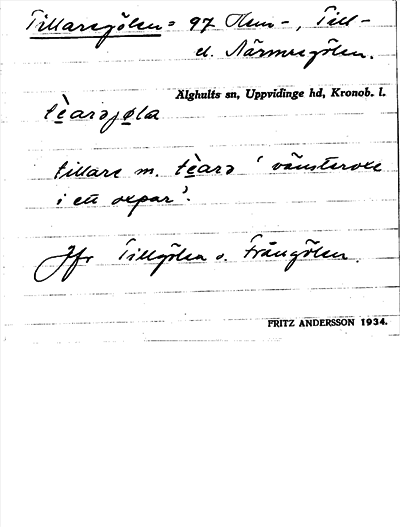 Tillaregölen = 97 Hem-, Till-
el. Närmregölen.
Älghults sn, Uppvidinge hd, Kronob. l.
tèarəjøla
tillare m. tèarə 'vänsteroxe
i ett oxpar'.
Jfr Tillgölen o. Frångölen.
FRITZ ANDERSSON 1934.